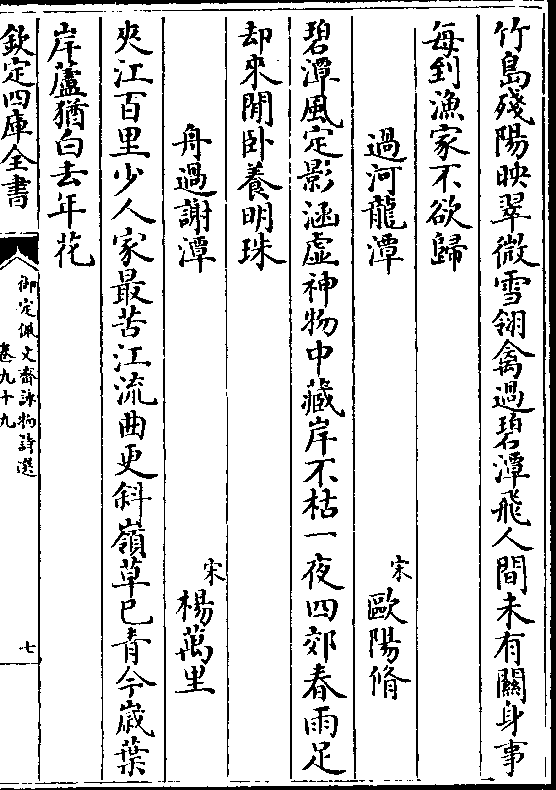 竹島殘陽映翠微雪翎禽過碧潭飛人間未有關身事
每到漁家不欲歸
過河龍潭
宋 歐陽脩
碧潭風定影涵虛神物中藏岸不枯一夜四郊春雨足
却來閒卧養明珠
舟過謝潭
宋 楊萬里
夾江百里少人家最苦江流曲更斜嶺草已青今歲葉
岸蘆猶白去年花
欽定四庫全書
御定佩文齋詠物詩選
卷九十九
七